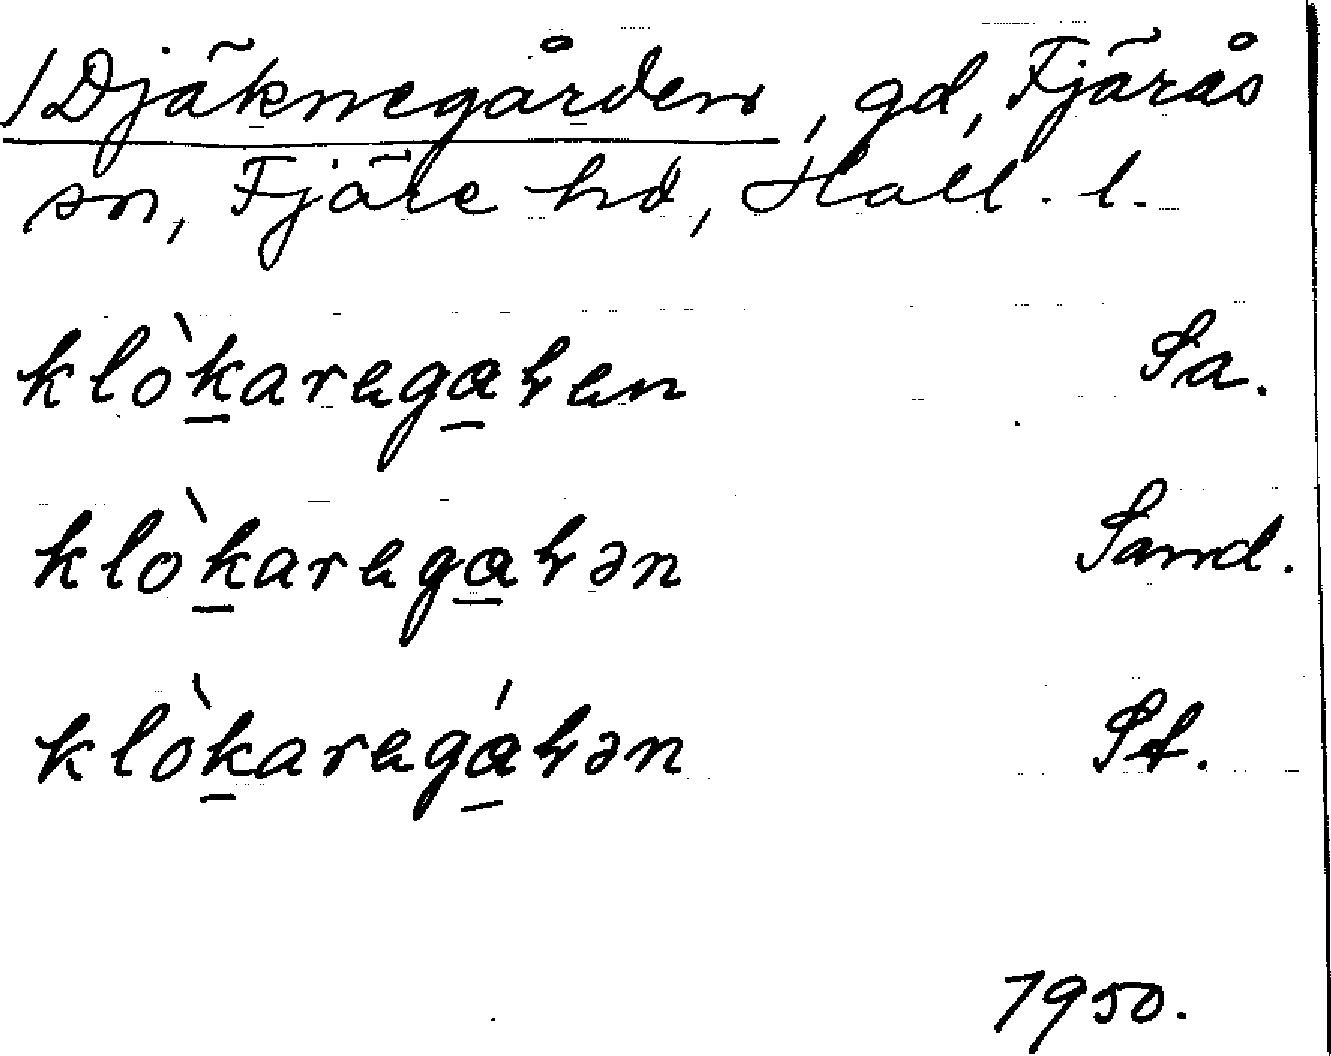 /Djäknegården, gd, Fjärås
sn, Fjäre hd, Hall. l.
klòkaregaɽen Sa.
klòkaregaɽən Sand.
klòkaregáɽən St.
1950.